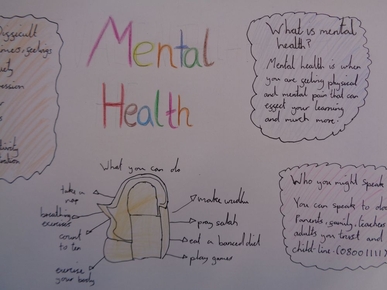 Mental
Health
Difficult
feelings
What is mental
health?
Mental health is when
you are feeling physical
and mental pain that can
effect your learning
and much more.
What you can do
take a
breathing
exercises
count
to ten
exercise
your body
make wudhu
pray salah
eat a banced diet
play games
Who you might speak
You can speak to
Parents, family, teachers
adults you trust and
child-line (08001111)